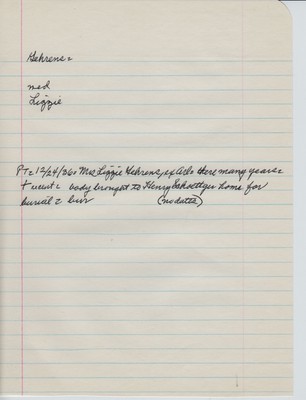 Gehrens =
med
Lizzie
PT= 12/24/36: Mrs Lizzie Gehrens, sx Cilo there many years =
+ went = body brought to Henry Schoettger home for
burial = bur (no dates)